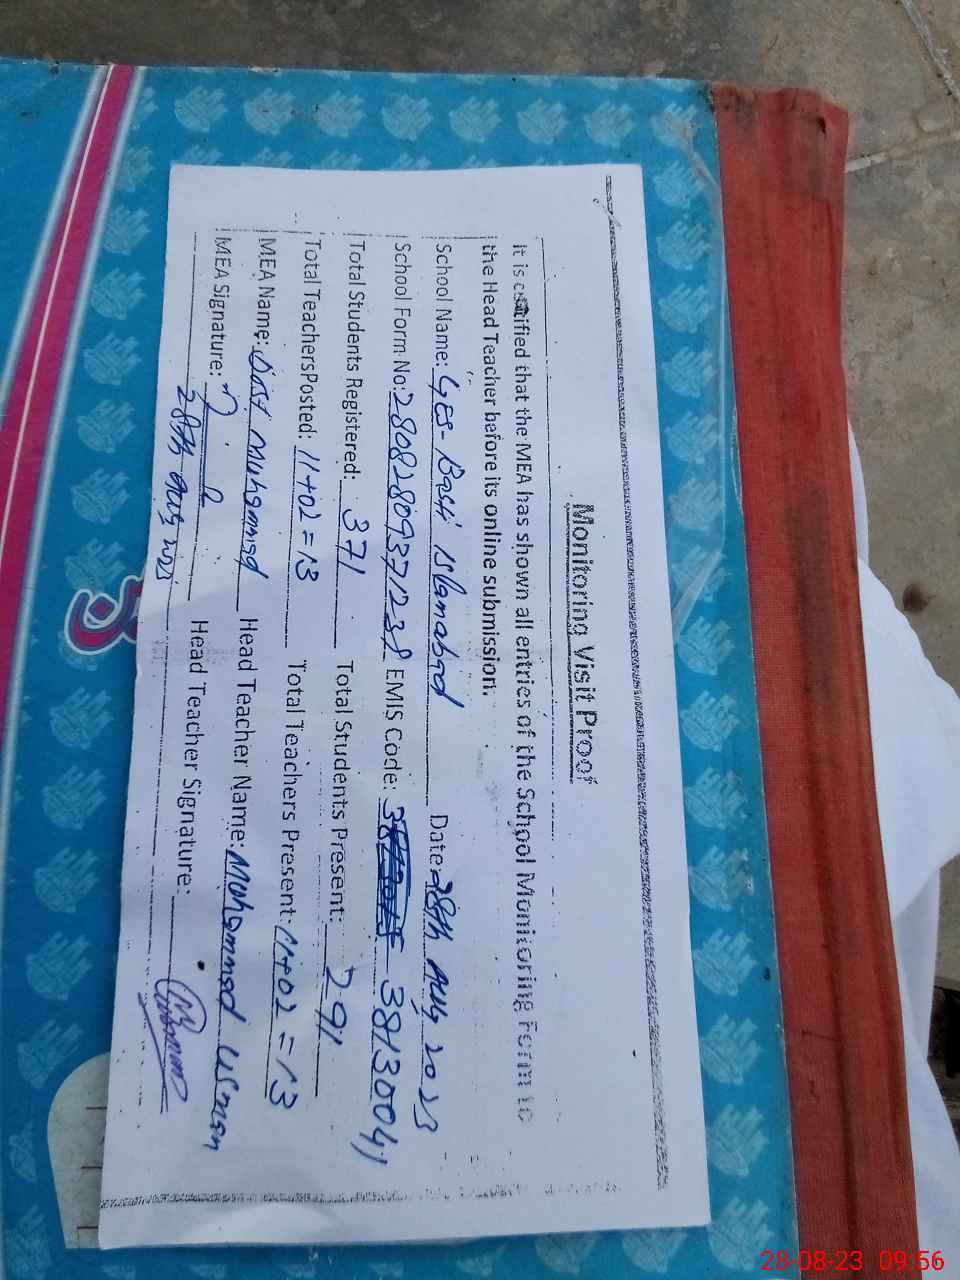 Monitoring Visit Proof
It is certified that the MEA has shown all entries of the School Monitoring Form to
the Head Teacher before its online submission.
School Name: GES- Basti Islamabad Date: 28th Aug 2023
School Form No: 28082809371238 EMIS Code: 38130041
Total Students Registered: 371 Total Students Present: 291
Total TeachersPosted: 11+02=13 Total Teachers Present: 11+02=13
MEA Name: Dost Muhammad Head Teacher Name: Muhammad Usman
MEA Signature: Head Teacher Signature:
28th Aug 2023
28-08-23 09:56